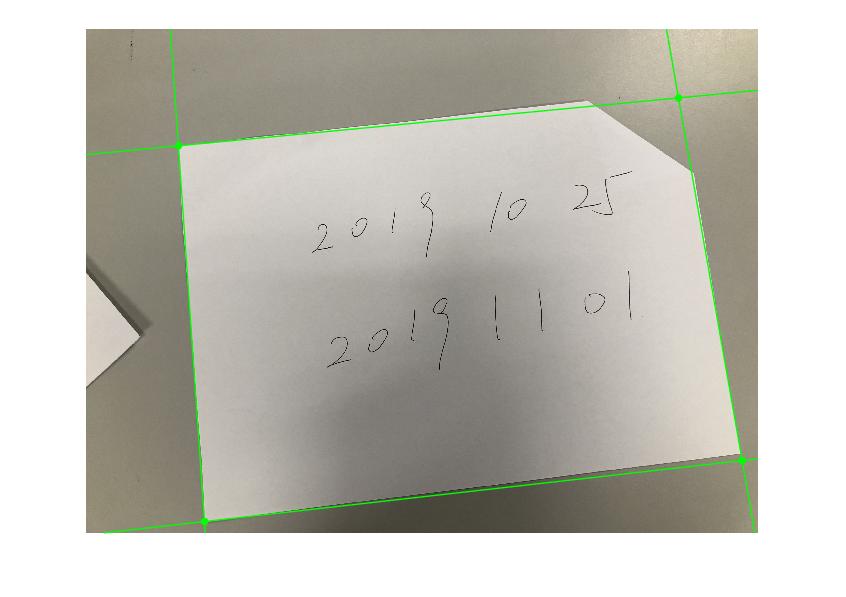 2019 10 25
2019 11 01